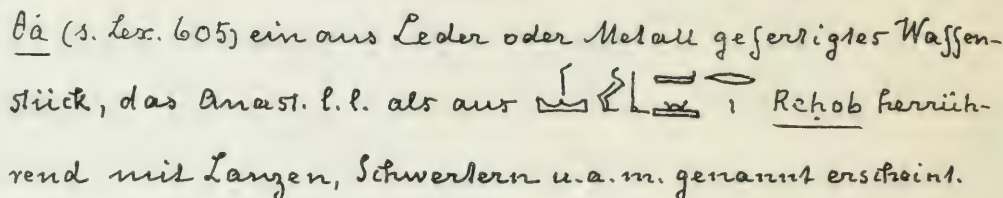 θá (s. Lex. 605) ein aus Leder oder Metall gefertigtes Waffen-
stück, das Anast. l. l. als aus Reḥob herrüh-
rend mit Lanzen, Schwertern u. a. m. genannt erscheint.